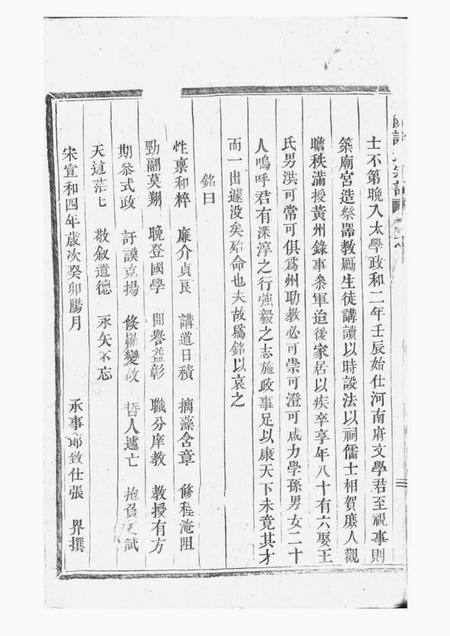 士不第晚入太學政和二年壬辰始仕河南府文學君至視事則
築廟宮造祭器教勵生徒講讀以時設法以祠儒士相賀縻人觀
瞻秩滿授黃州錄事叅軍迫後家居以疾卒享年八十有六娶王
氏男洪可常可俱為州助教必可崇可澄可咸力學孫男女二十
人嗚呼君有深淳之行強毅之志施政事足以康天下未竟其才
而一出遽没矣殆命也夫故為銘以哀之
銘曰
性稟和粹 廉介貞良 講道日積 摛藻含章 修程淹阻
勁翮莫翔 晚登國學 聞譽益彰 職分庠教 教授有方
期泰式政 訏謨克揚 倏罹變故 哲人遽亡 抱負 試
天道茫匕 敬叙道德 永矢不忘
宋宣和四年歲次癸卯陽月 承事郎致仕張 界撰